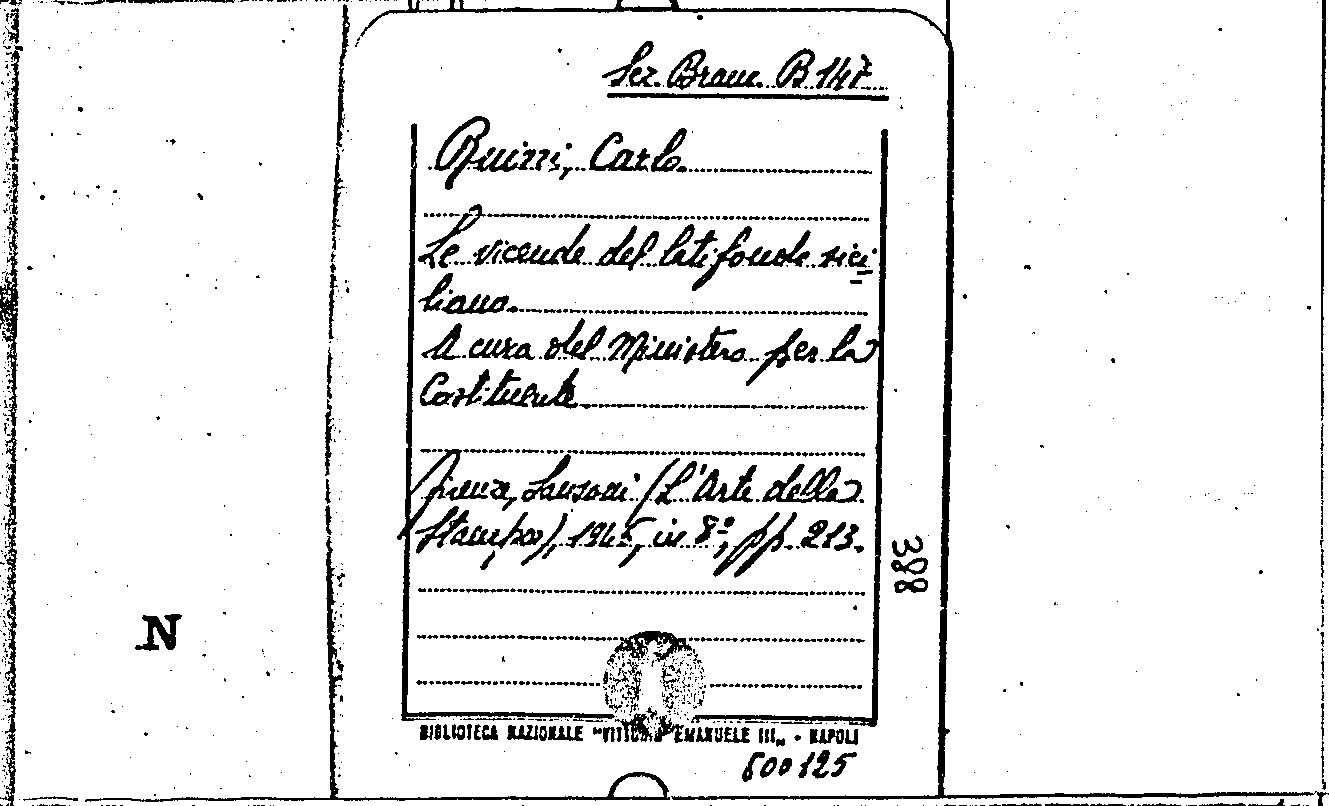 Sez. Branc. B 147
Ruini, Carlo.
Le vicende del latifondo sici
liano.
A cura del Ministero per la
Costituente
Firenze, Sansoni (L'Arte della
Stampa), 1946, in 8°, pp. 213.
388
N
BIBLIOTECA NAZIONALE "VITTORIO EMANUELE III" - NAPOLI
500125